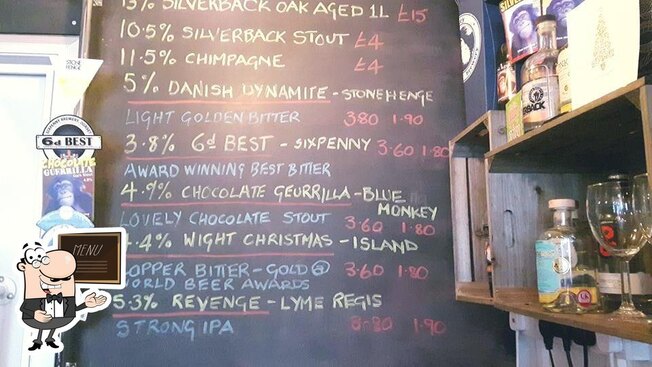 13% SILVERBACK OAK AGED 1L £15
10.5% SILVERBACK STOUT £4
11.5% CHIMPAGNE £4
5% DANISH DYNAMITE - STONEHENGE
LIGHT GOLDEN BITTER 3.80 1.90
3.8% 6d BEST - SIXPENNY 3.60 1.80
AWARD WINNING BEST BITTER
4.9% CHOCOLATE GEURRILA - BLUE MONKEY
LOVELY CHOCOLATE STOUT 3.60 1.80
4.4% WIGHT CHRISTMAS - ISLAND
COPPER BITTER - GOLD @ 3.60 1.80
WORLD BEER AWARDS
5.3% REVENGE - LYME REGIS
STRONG IPA 3.80 1.90
6d BEST
CHOCOLATE
GUERRILLA
MENU
SILVER
ERBACK